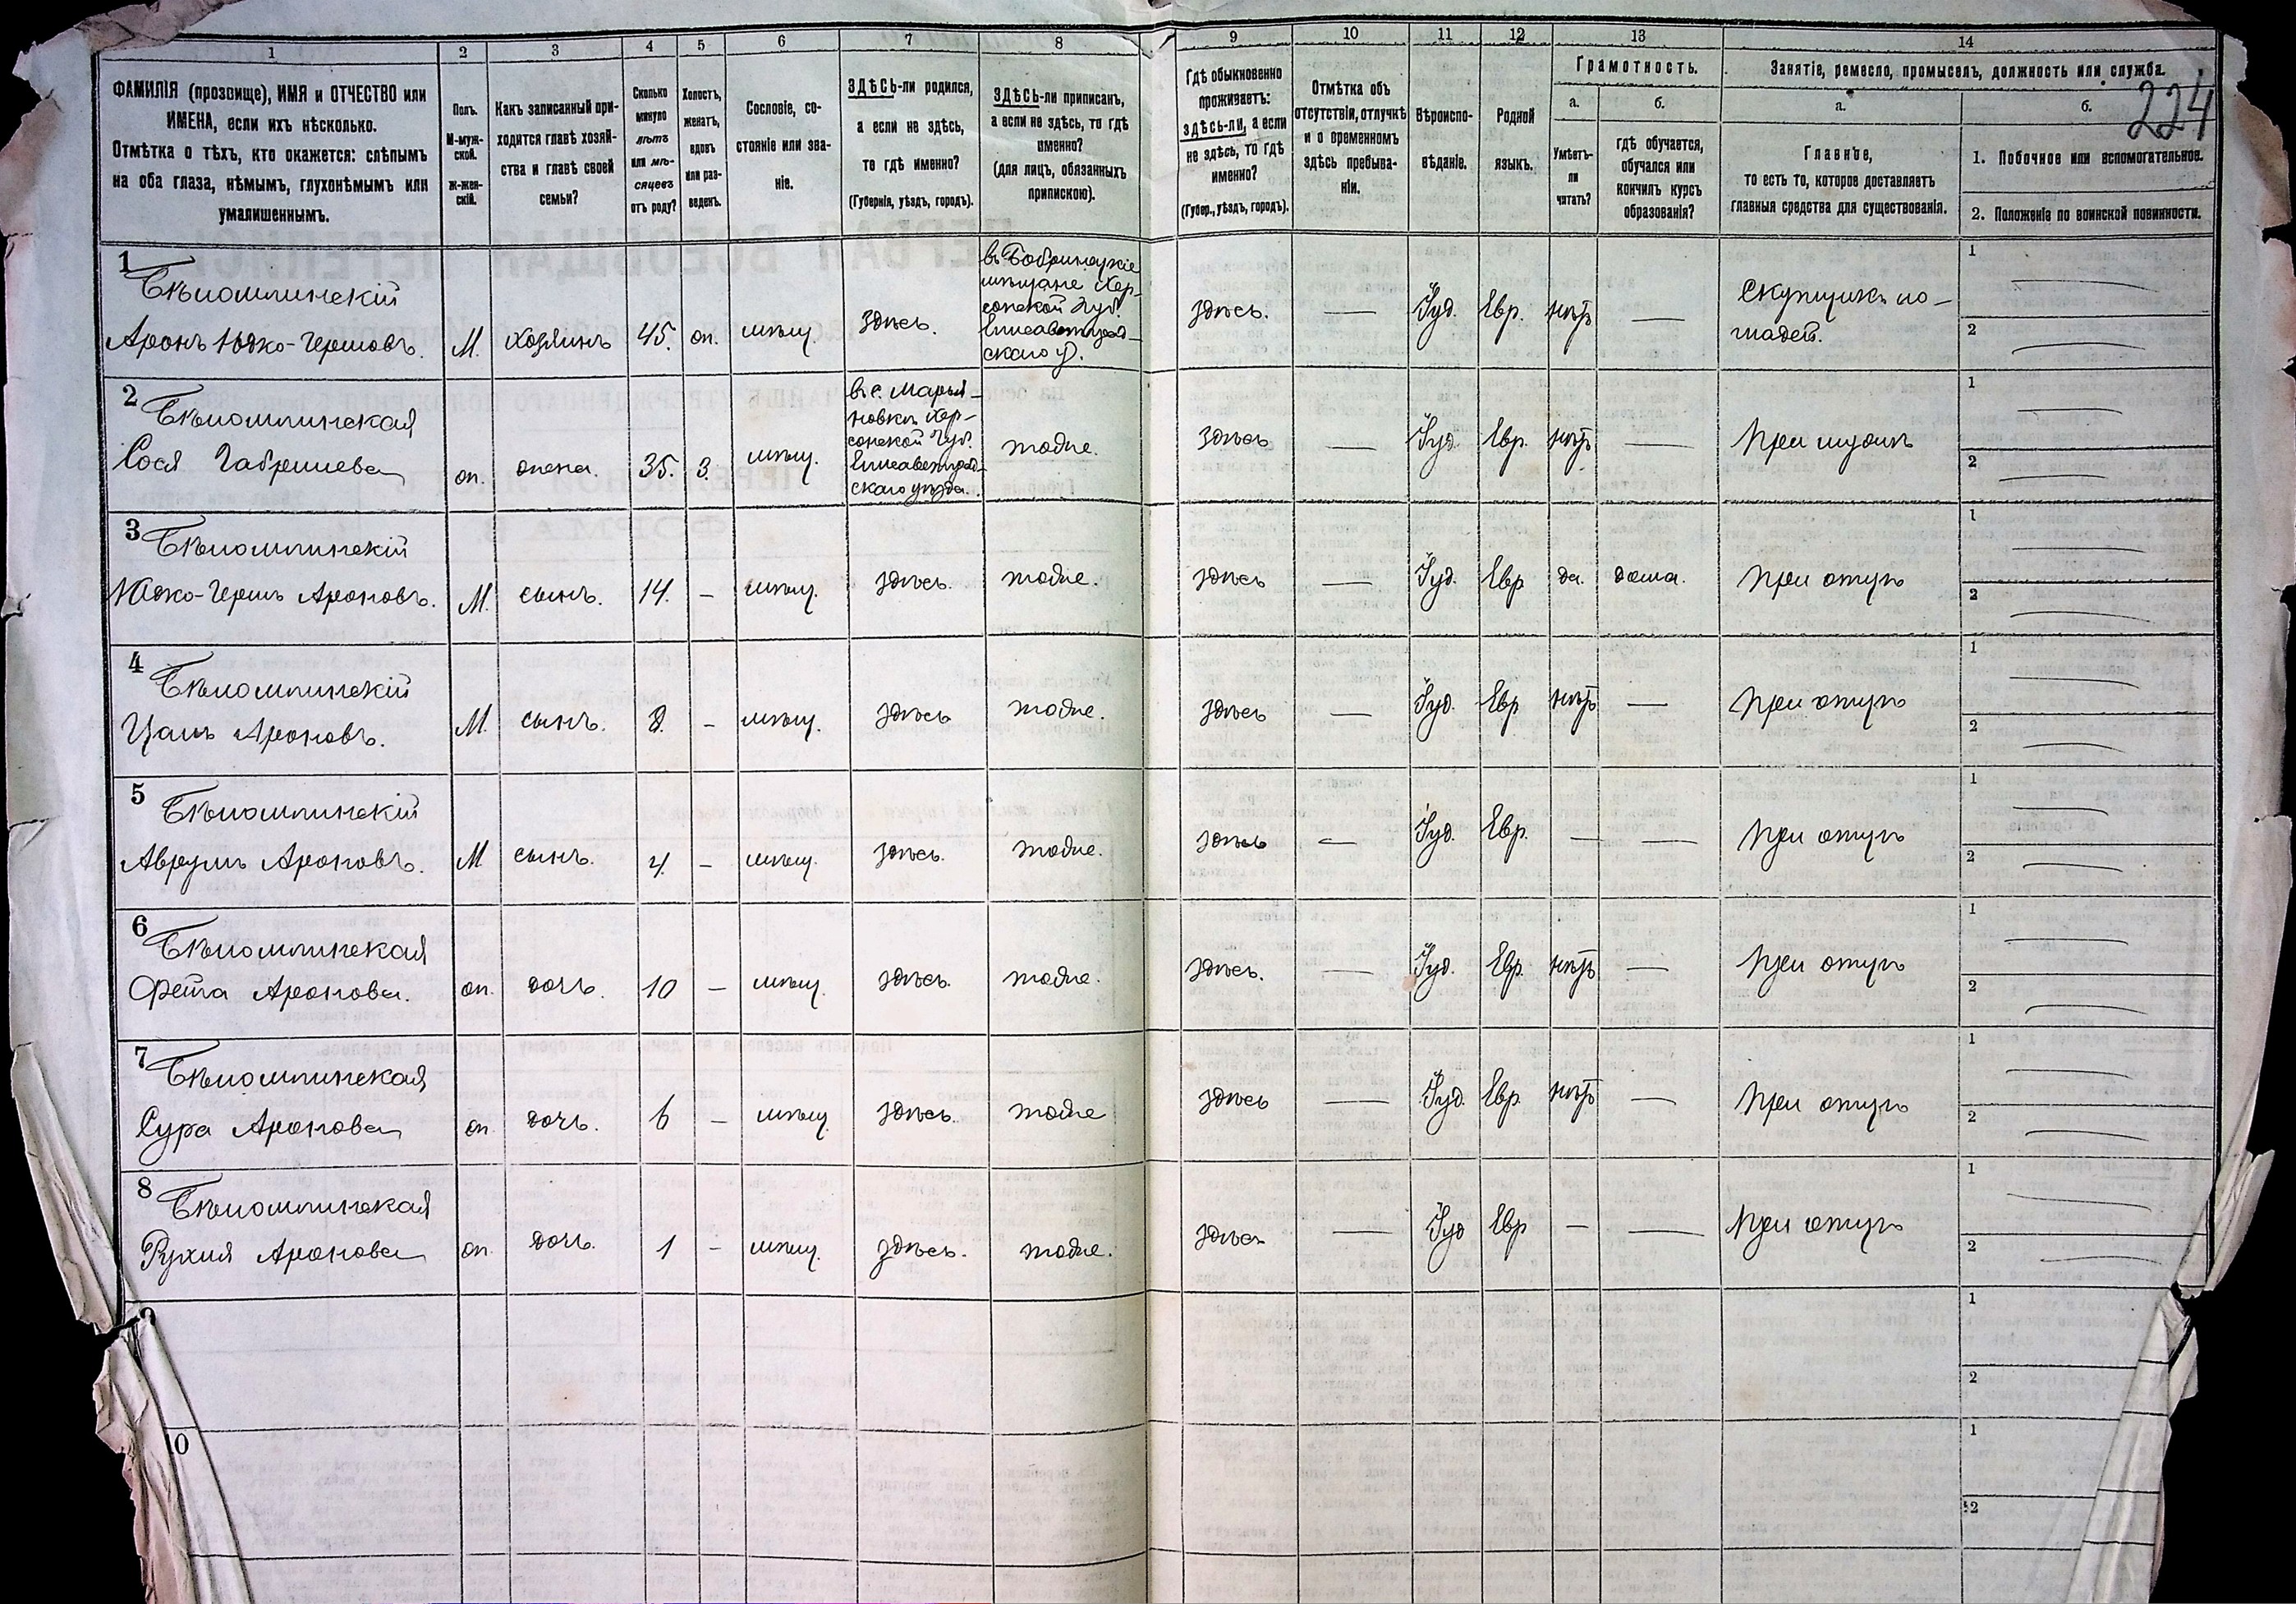 1 2 3 4 5 6 7 8 9 10 11 12 13 14
ФАМИЛІЯ (прозвище), ИМЯ и ОТЧЕСТВО или
ИМЕНА, если ихъ нѣсколько.
Отмѣтка о тѣхъ, кто окажется: слѣпымъ
на оба глаза, нѣмымъ, глухонѣмымъ или
умалишеннымъ.
Полъ.
М-муж-
ской.
ж-жен-
скій.
Какъ записанный при-
ходится главѣ хозяй-
ства и главѣ своей
семьи?
Сколько
минуло
лѣтъ
или мѣ-
сяцевъ
отъ роду?
Холостъ,
женатъ,
вдовъ
или раз-
веденъ.
Сословіе, со-
стояніе или зва-
ніе.
ЗДѢСЬ-ли родился,
а если не здѣсь,
то гдѣ именно?
(Губернія, уѣздъ, городъ).
ЗДѢСЬ-ли приписан,
а если не здѣсь, то гдѣ
именно?
(для лицъ, обязанныхъ
припискою).
Гдѣ обыкновенно
проживаетъ:
здѣсь-ли, а если
не здѣсь, то гдѣ
именно?
(Губер., уѣздъ, городъ).
Отмѣтка объ
отсутствіи, отлучкѣ
и о временномъ
здѣсь пребыва-
ніи.
Вѣроиспо-
вѣданіе.
Родной
языкъ.
Грамотность.
а.
Умѣетъ-
ли
читать?
б.
гдѣ обучается,
обучался или
кончилъ курсъ
образованія?
Занятіе, ремесло, промыселъ, должность или служба.
224
а.
Главное,
то есть то, которое доставляетъ
главныя средства для существованія.
б.
1. Побочное или вспомогательное.
2. Положеніе по воинской повинности.
1
Бѣломлинскій
Аронъ Юдко-Гершовъ. М. хозяинъ 45. жен. мѣщ. здѣсь.
въ Бобринецкіе
мѣщане Хер-
сонской Губ.
Елисаветград-
скаго у.
здѣсь. — Іуд. Евр. нѣтъ —
Скупщикъ ло-
шадей.
1
2
2
Бѣломлинская
Сося Габрилева ж. жена. 35. З. мѣщ.
въ с. Марья-
новкѣ Хер-
сонской Губ.
Елисаветград-
скаго уѣзда.
тоже. здѣсь — Іуд. Евр. нѣтъ — при мужѣ
1
2
3
Бѣломлинскій
Юдко-Гершъ Ароновъ. М. сынъ. 14. - мѣщ. здѣсь. тоже. здѣсь — Іуд. Евр да. дома. при отцѣ
1
2
4
Бѣломлинскій
Ароновъ. М. сынъ. 8. - мѣщ. здѣсь тоже. здѣсь — Іуд. Евр нѣтъ — при отцѣ
1
2
5
Бѣломлинскій
Аврумъ Ароновъ. М сынъ. 4. - мѣщ. здѣсь. тоже. здѣсь — Іуд. Евр. — — при отцѣ
1
2
6
Бѣломлинская
Фейга Аронова. ж. дочь. 10 - мѣщ. здѣсь. тоже. здѣсь. — Іуд. Евр. нѣтъ — при отцѣ
1
2
7
Бѣломлинская
Сура Аронова ж. дочь. 6 - мѣщ. здѣсь. тоже здѣсь — Іуд. Евр. нѣтъ — при отцѣ
1
2
8
Бѣломлинская
Рухля Аронова ж. дочь. 1 - мѣщ. здѣсь. тоже. здѣсь — Іуд Евр — — при отцѣ
1
2
9
1
2
10
1
2